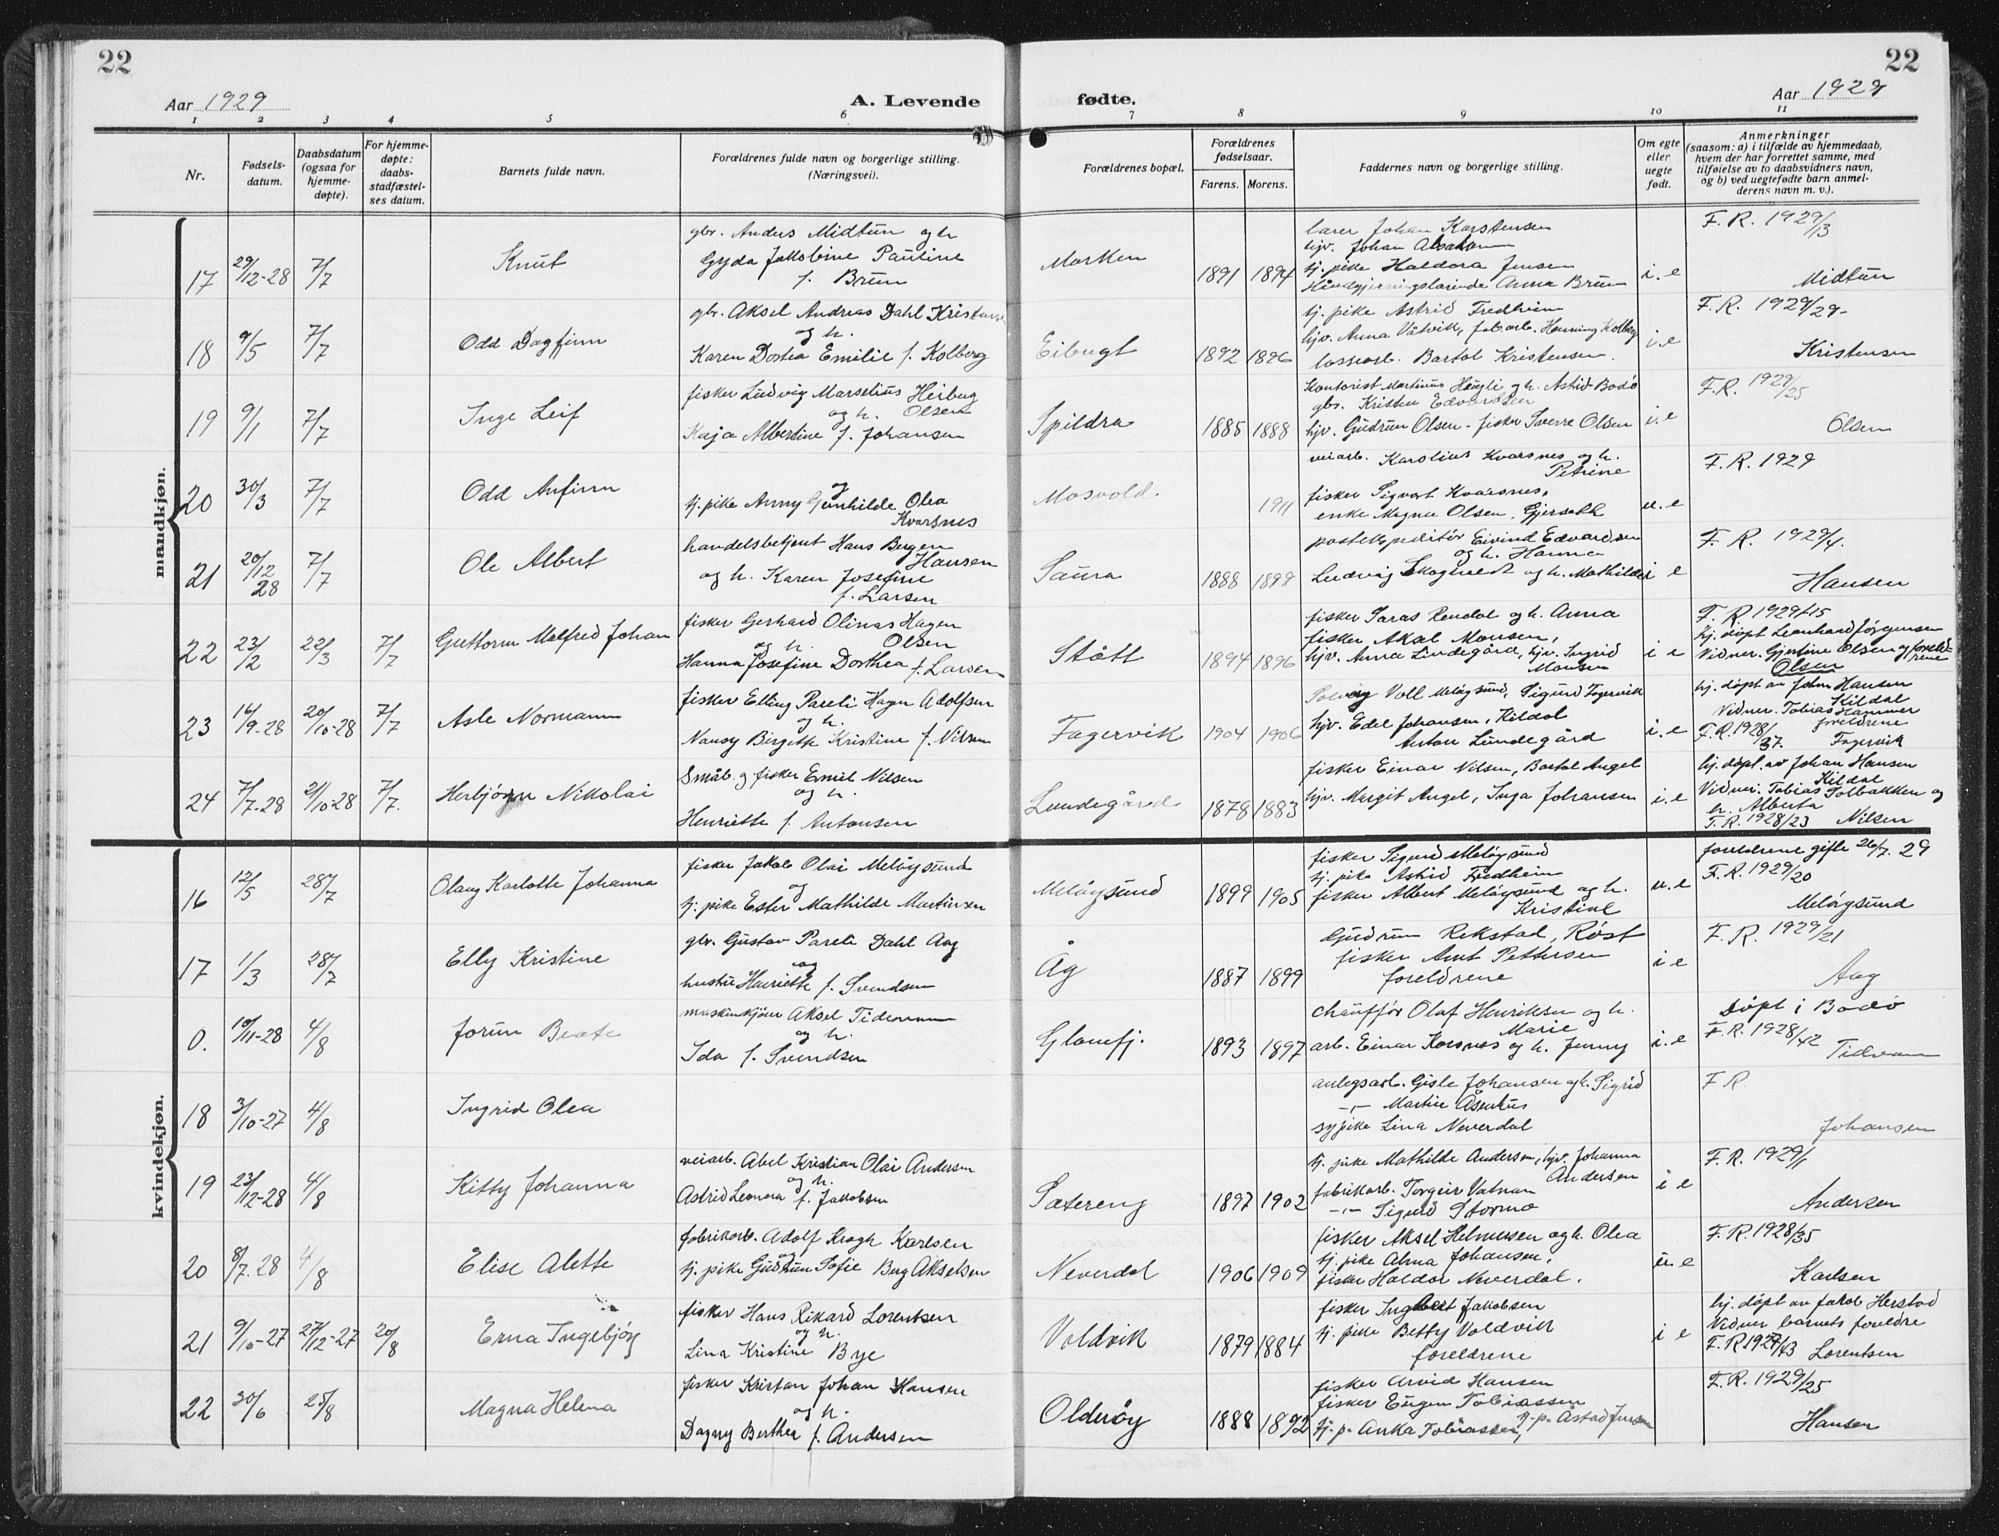 22
22
Aar 1929
A. Levende
fødte.
Aar 1929
1 2 3 4 5 6 7 8 9 10 11
Nr.
Fødsels-
datum.
Daabsdatum
(ogsaa for
hjemme-
døpte).
For hjemme-
døpte:
daabs-
stadfæstel-
ses datum.
Barnets fulde navn.
Forældrenes fulde navn og borgerlige stilling.
(Næringsvei).
Forældrenes bopæl.
Forældrenes
fødselsaar.
Farens. Morens.
Faddernes navn og borgerlige stilling.
Om egte
eller
uegte
født.
Anmerkninger
(saasom: a) i tilfælde av hjemmedaab,
hvem der har forrettet samme, med
tilføielse av to daabsvidners navn,
og b) ved uegtefødte barn anmel-
derens navn m. v.).
mandkjøn.
17 29/12-28 7/7 Knut
gbr. Anders Midtun og h
Gyda Jakobine Pauline
f. Brun
Morken 1891 1894
lærer Johan Karstensen
hjv. Johan
tj. pike Haldora Jensen
Håndgjerningslærinde Anna Brun
i. e
F. R. 1929/13
Midtun
18 9/5 7/7 Odd Dagfinn
gbr. Aksel Andreas Dahl
og h.
Karen Dortea Emilie f. Kolberg
Eibugt 1892 1896
tj. pike Astrid Fredheim
hjv. Anna Våtvik, fabarb. Henning Kolberg
lossearb. Bartol Kristensen.
i. e
F. R. 1929/29.
Kristensen
19 9/1 7/7 Inge Leif
fisker Ludvig Marselius Heibug
og h. Olsen
Kaja Albertine f. Johansen
Spildra 1885 1888
Kontorist Martinus Haugli og h. Astrid Bodø
gbr. Kristen Edvardsen
hjv. Gudrun Olsen - fisker Sverre Olsen
i. e
F. R. 1929/25
Olsen
20 30/3 7/7 Odd Anfinn
og
tj. pike Anny Gunhilde Olea
Kvarsnes
Mosvold. 1911
veiarb. Karolius Kvarsnes og h.
Petrine
fisker Sigvart Kvarsnes,
enke Magna Olsen, Gjersethh
u. e
F. R. 1929
21 20/12 28 7/7 Ole Albert
handelsbetjent Hans Bergen
Hansen
og h. Karen Josefine
f. Larsen
Saura 1888 1899
postekspeditør Eivind Edvardsen
og h. Hanna
Ludvig Skogvedt og h. Mathilde
i e
F. R. 1929/4.
Hansen
22 23/2 22/3 7/7 Guttorm Malfred Johan
fisker Gerhard Olinas Hagen
og h. Olsen
Hanna Josefine Dorthea f. Larsen
Støtt 1894 1896
fisker Saras Rendal og h. Anna
fisker Aksel Monsen,
hjv. Anna Lundegård, hjv. Ingrid
Monsen
i e
F. R. 1929/15
hj. døpt Leonhard Jørgensen
Vidner. Gjertine Olsen og foreld-
rene
Olsen
23 16/9-28 20/10-28 7/7 Asle Normann
fisker Elling Pareli Hagen Adolfsen
og h.
Nansy Birgette Kristine f. Nilsen
Fagervik 1904 1906
Solveig Voll Meløysund, Sigurd Fagervik
hjv. Edel Johansen, Kildal
Anton Lundegård
i. e
hj. døpt av John Hansen
Kildal
Vidner. Tobias Hammer
foreldrene
F. R. 1928/37. Fagervik
24 7/7-28 21/10-28 7/7. Herbjørn Nikolai
Småb. og fisker Emil Nilsen
og h.
Henriette f. Antonsen
Lundegård 1878 1883
fisker Einar Nilsen, Bartol Angel
hjv. Margit Angel, Inga Johansen
i. e
hj. døpt. av Johan Hansen
Kildal
Vidner. Tobias Solbakken og
h. Alberta
F. R. 1928/23 Nilsen
kvindekjøn.
16 12/5 28/7 Olaug Karlotte Johanna
fisker Jakob Olai Meløysund
og
tj. pike Ester Mathilde Martinsen
Meløysund 1899 1905
fisker Sigurd Meløysund
tj. pike Astrid Fredheim
fisker Albert Meløysund og h.
Kristine
u. e
foreldrene gifte 26/7. 29
F. R. 1929/20
Meløysund
17 1/3 28/7 Elly Kristine
gbr. Gustav Pareli Dahl Aag
og
hustru Henriette f. Svendsen
Åg 1887 1899
Gudrun Rekstad, Røst
fisker Arnt Pettersen
foreldrene
i e
F. R. 1929/21
Aag
0. 19/11-28 4/8 Jorun Beate
maskinkjører Aksel
og h.
Ida f. Svendsen
Glomfj. 1893 1897
chauffør Olaf Henriksen og h.
Marie
arb. Einar Korsnes og h. Jenny
i. e
Døpt i Bodø
F. R. 1928/42
18 3/10-27 4/8 Ingrid Olea
anlegsarb. Gisle Johansen og h. Sigrid
-,- Martin Åsenhus
sypike Lina Neverdal
F. R.
Johansen
19 23/12-28 4/8 Kitty Johanna
veiarb. Abel Kristian Olai Andersen
og h.
Astrid Leonora f. Jakobsen
Sætereng 1897 1902
tj. pike Mathilde Andersen, hjv. Johanna
Andersen
fabrikarb. Torgeir Vatnan
-,- Sigurd Stormo
i e
F. R. 1929/1
Andersen
20 8/7-28 4/8 Elise Alette
fabrikarb. Adolf Krogh Karlsen
og
tj. pike Gudrun Sofie Berg Akselsen
Neverdal 1906 1909
fisker Aksel Helmersen og h. Olea
tj. pike Alma Johansen,
fisker Haldor Neverdal.
u. e
F. R. 1928/35
Karlsen
21 9/10-27 27/12-27 20/8 Erna Ingebjørg
fisker Hans Rikard Lorentsen
og h.
Lina Kristine Bye
Voldvik 1879 1884
fisker Ingbert Jakobsen
tj. pike Betty Voldvik
foreldrene
i e
hj. døpt av Jakob Herstad
Vidner barnets foreldre
F. R 1927/43 Lorentsen
22 30/6 25/8 Magna Helena
fisker Kristan Johan Hansen
og h.
Dagny Berthea f. Andersen
Olderøy 1888 1892
fisker Arvid Hansen
fisker Eugen Tobiassen
tj. p. Anka Tobiassen, tj. p. Astad Jensen
F. R. 1929/25
Hansen